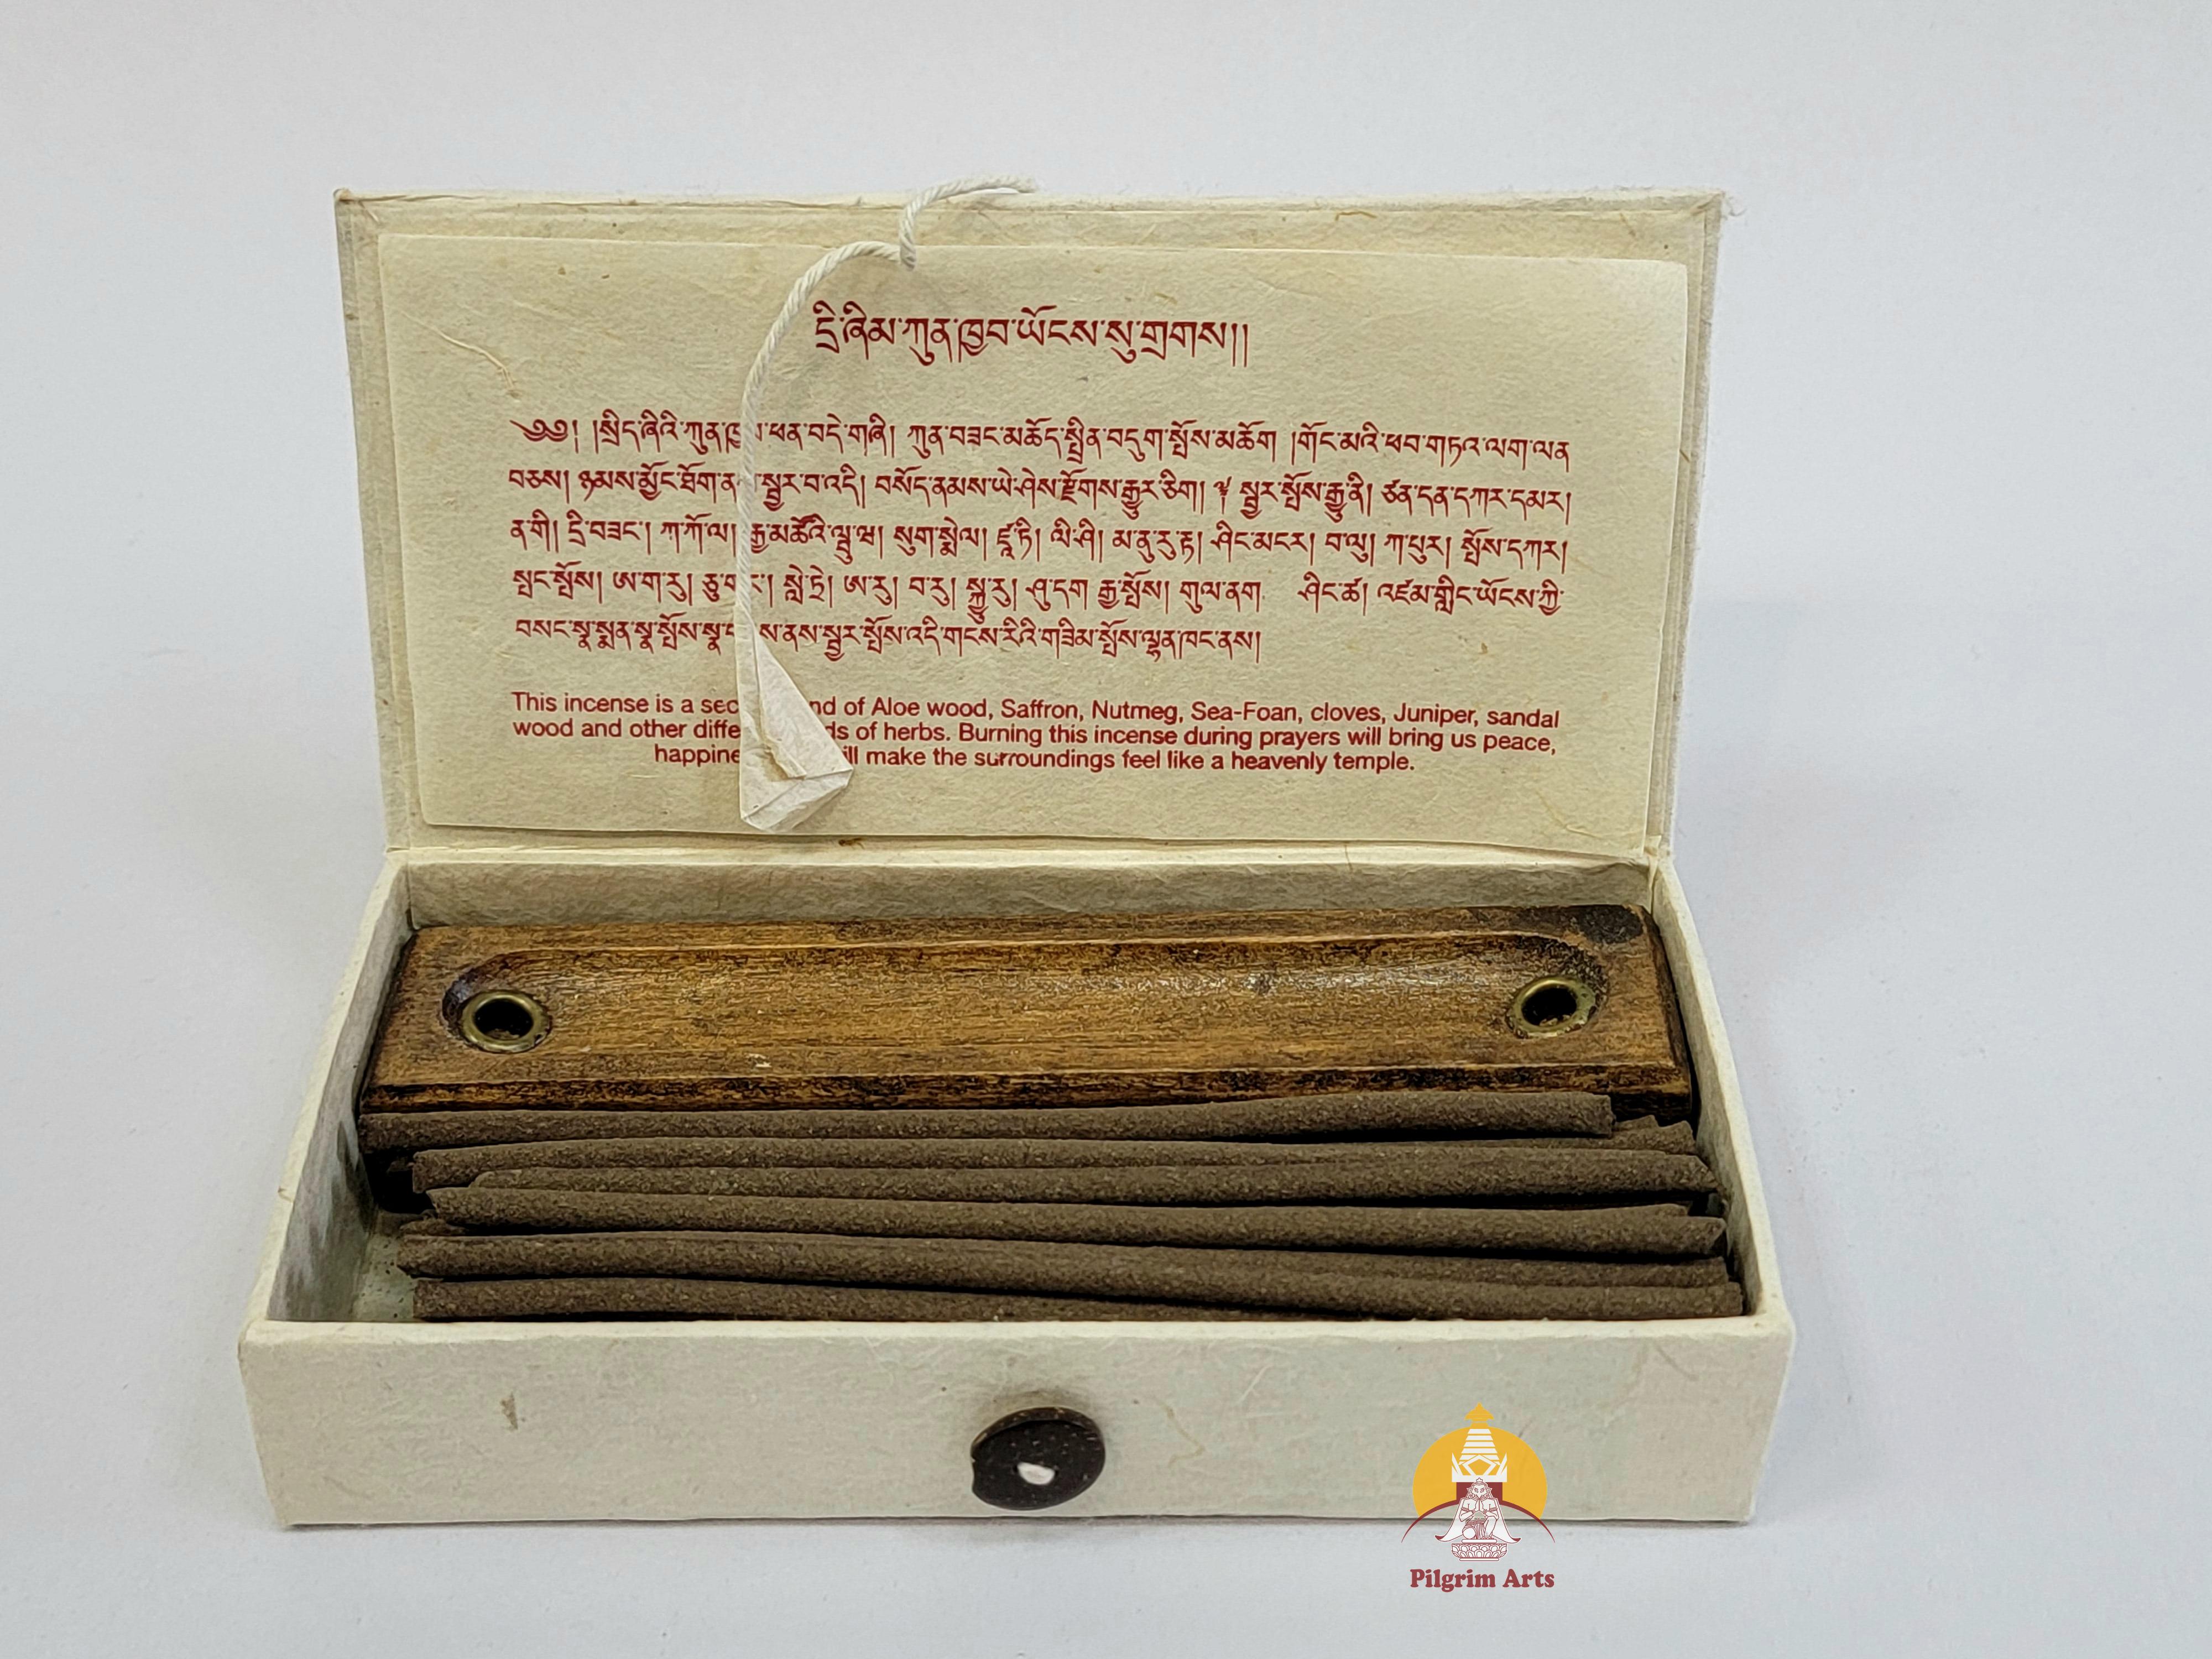 དྲི་ཞིམ་ཀུན་ཁྱབ་ཡོངས་སུ་གྲགས།།
༄༅། །སྲིད་ཞིའི་ཀུན་ ཕན་བདེ་གཞི། ཀུན་བཟང་མཆོད་སྤྲིན་བདུག་སྤོས་མཆོག །གོང་མའི་ཕབ་གཏའ་ལག་ལན
བཅས། ཉམས་མྱོང་ཐོག་ སྦྱར་བ་འདི། བསོད་ནམས་ཡེ་ཤེས་རྫོགས་རྒྱུར་ཅིག། སྦྱར་སྤོས་རྒྱུ་ནི། ཙན་དན་དཀར་དམར།
ན་གི། དྲི་བཟང་། ཀ་ཀོ་ལ། རྒྱ་མཚོའི་ལྦུ་བ། སུག་སྨེལ། ཛཱ་ཏི། ལི་ཤི། མ་ནུ་རུ་རྟ། ཤིང་མངར། བ་ལུ། ཀ་པུར། སྤོས་དཀར།
སྤང་སྤོས། ཨ་ག་རུ། ཅུ་ སླེ་ཏྲེ། ཨ་རུ། བ་རུ། སྐྱུ་རུ། ཤུ་དག རྒྱ་སྤོས། གུལ་ནག ཤིང་ཚ། འཛམ་གླིང་ཡོངས་ཀྱི་
བསང་སྣ་སྨན་སྣ་སྤོས་སྣ་ ནས་སྦྱར་སྤོས་འདི་གངས་རིའི་གཟིམ་སྤོས་ལྷན་ཁང་ནས།
This incense is a of Aloe wood, Saffron, Nutmeg, Sea-Foan, cloves, Juniper, sandal
wood and other of herbs. Burning this incense during prayers will bring us peace,
make the surroundings feel like a heavenly temple.
Pilgrim Arts